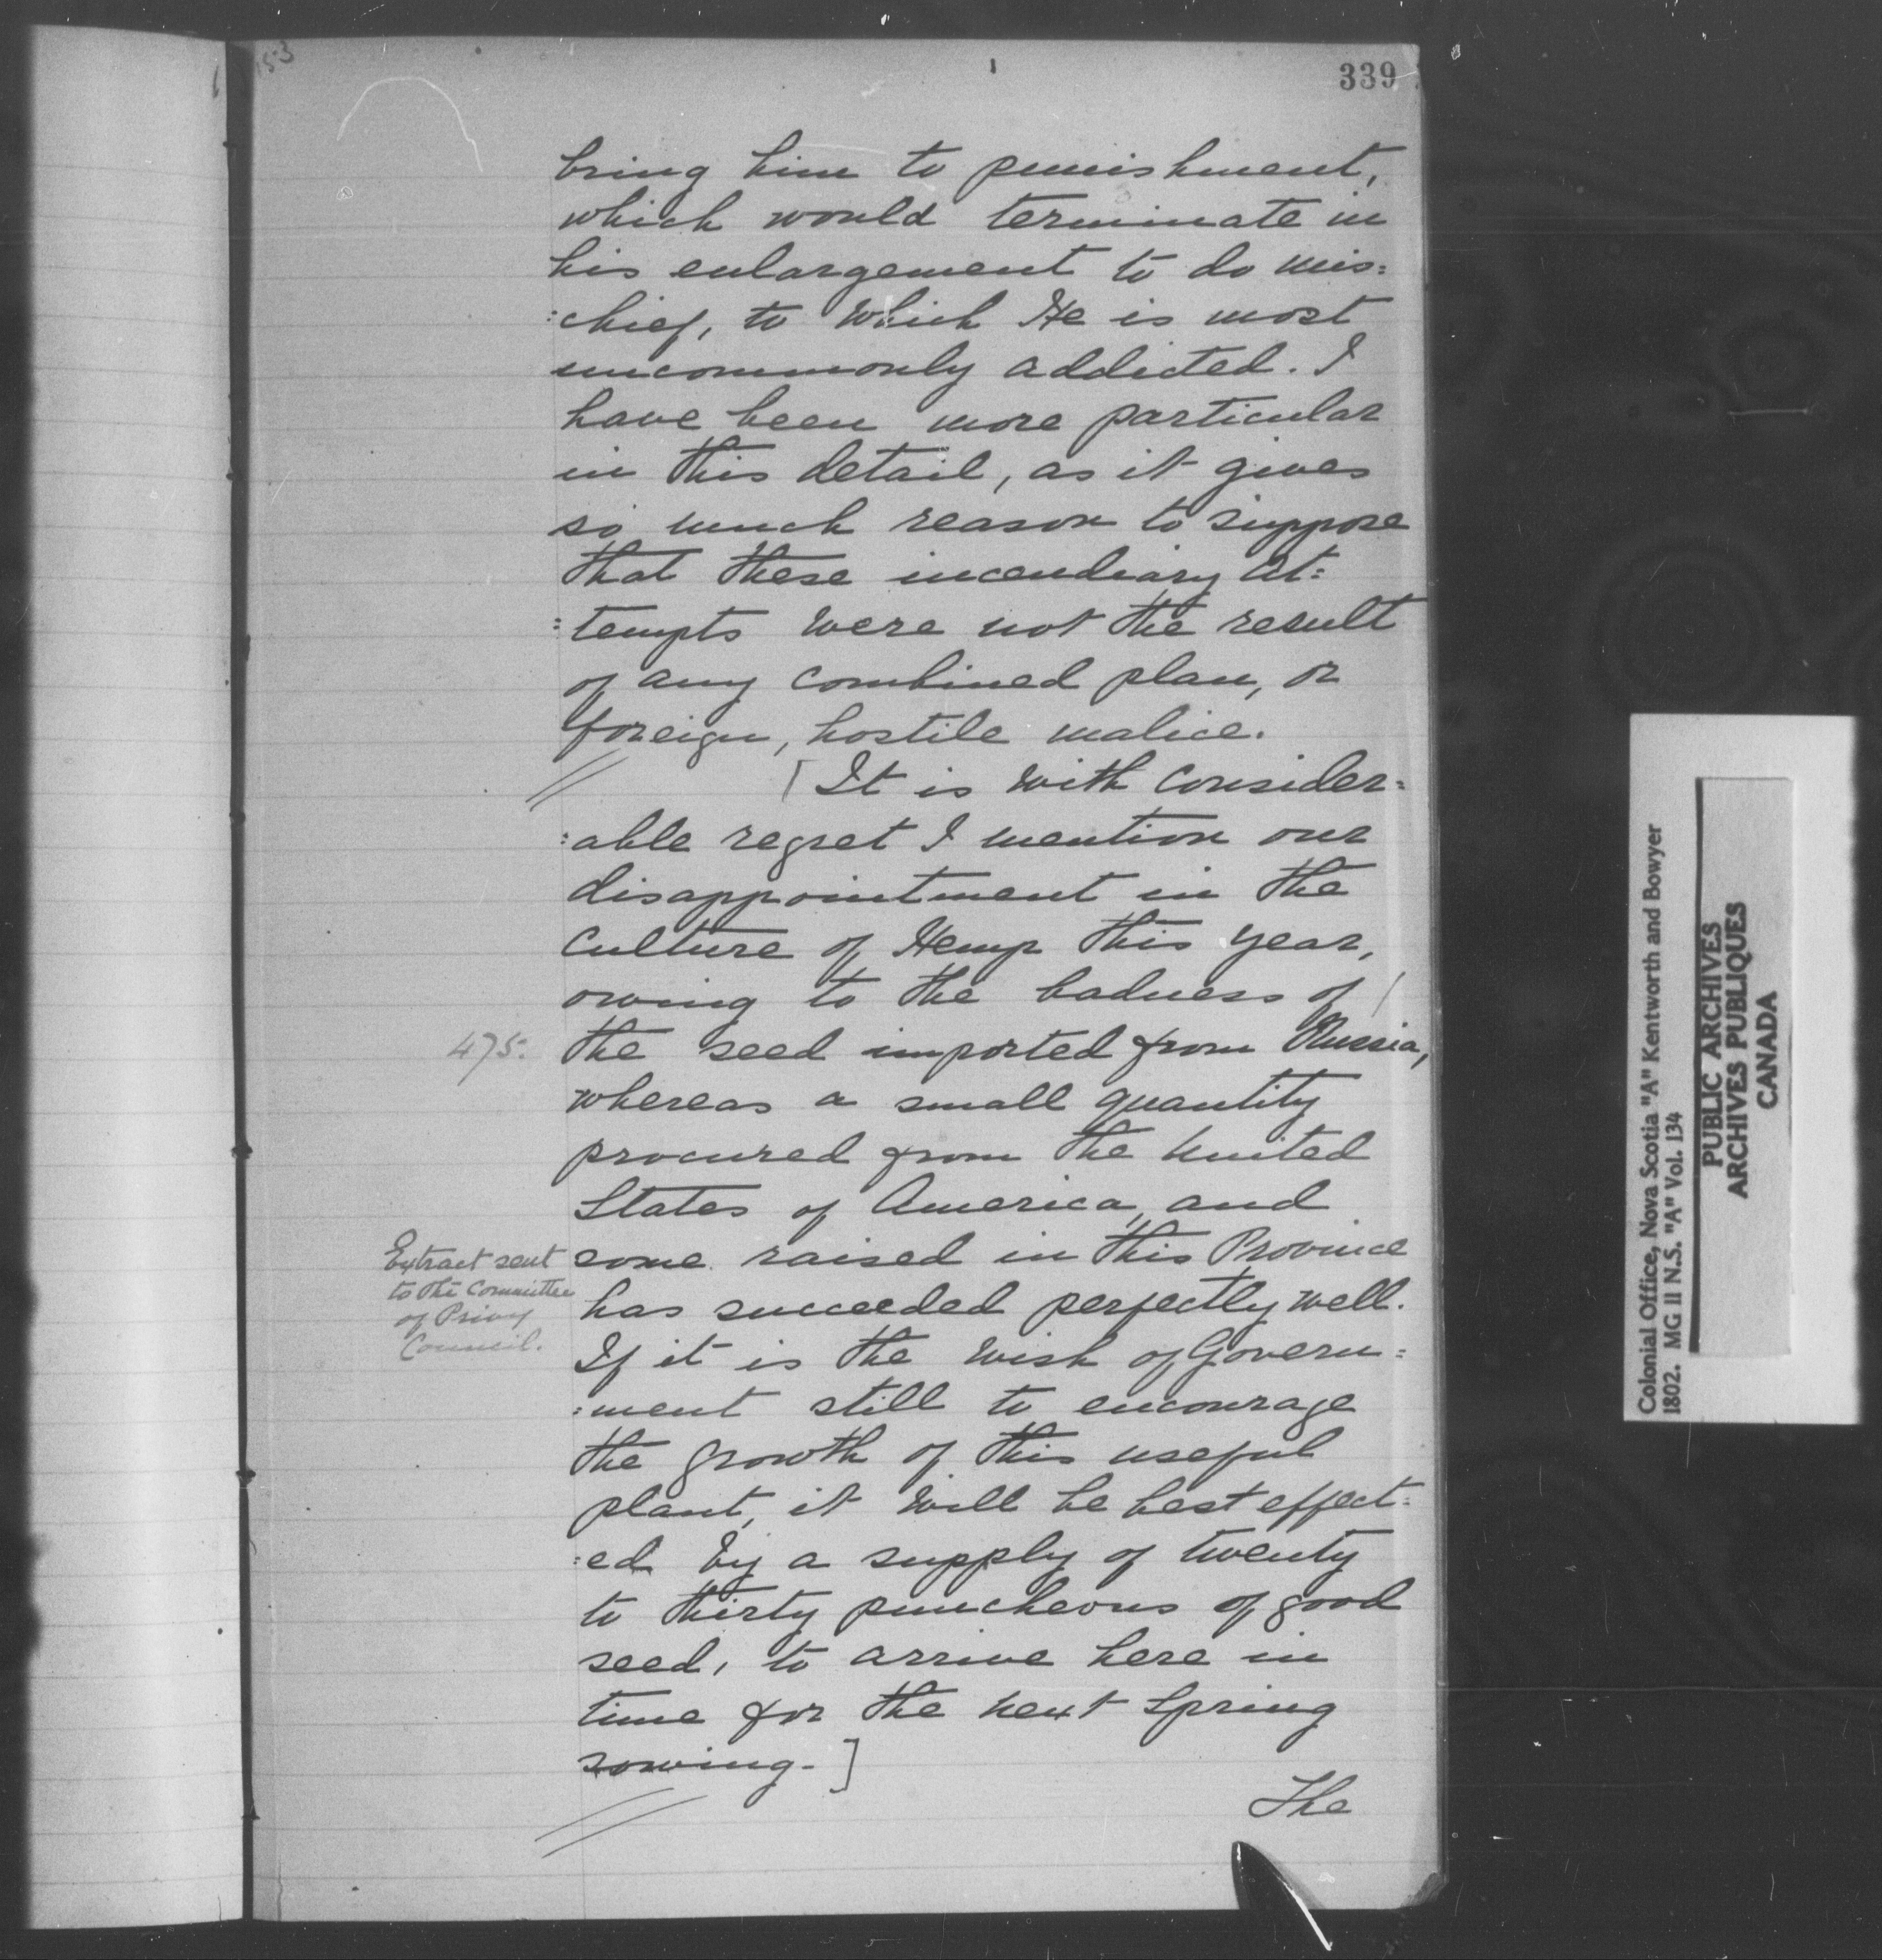 153
339
bring him to punishment,
which would terminate in
his enlargement to do mis=
:chief, to which He is most
uncommonly addicted. I
have been more particular
in this detail, as it gives
so much reason to suppose
that these incendiary at=
=tempts were not the result
of any combined plan, or
foreign, hostile malice.
[It is with consider=
:able regret I mention our
disappointment in the
culture of Hemp this year,
owing to the badness of
475.
the seed imported from Russia,
whereas a small quantity
procured from the United
States of America, and
some raised in this Province
has succeeded perfectly well.
Extract sent
to the Committee
of Privy
Council.
If it is the wish of Govern=
:ment still to encourage
the growth of this useful
plant, it will be best effect=
:ed by a supply of twenty
to thirty puncheons of good
seed, to arrive here in
time for the next Spring
sowing.]
The
Colonial Office, Nova Scotia "A" Kentworth and Bowyer
1802. MG II N.S. "A" Vol. 134
PUBLIC ARCHIVES
ARCHIVES PUBLIQUES
CANADA